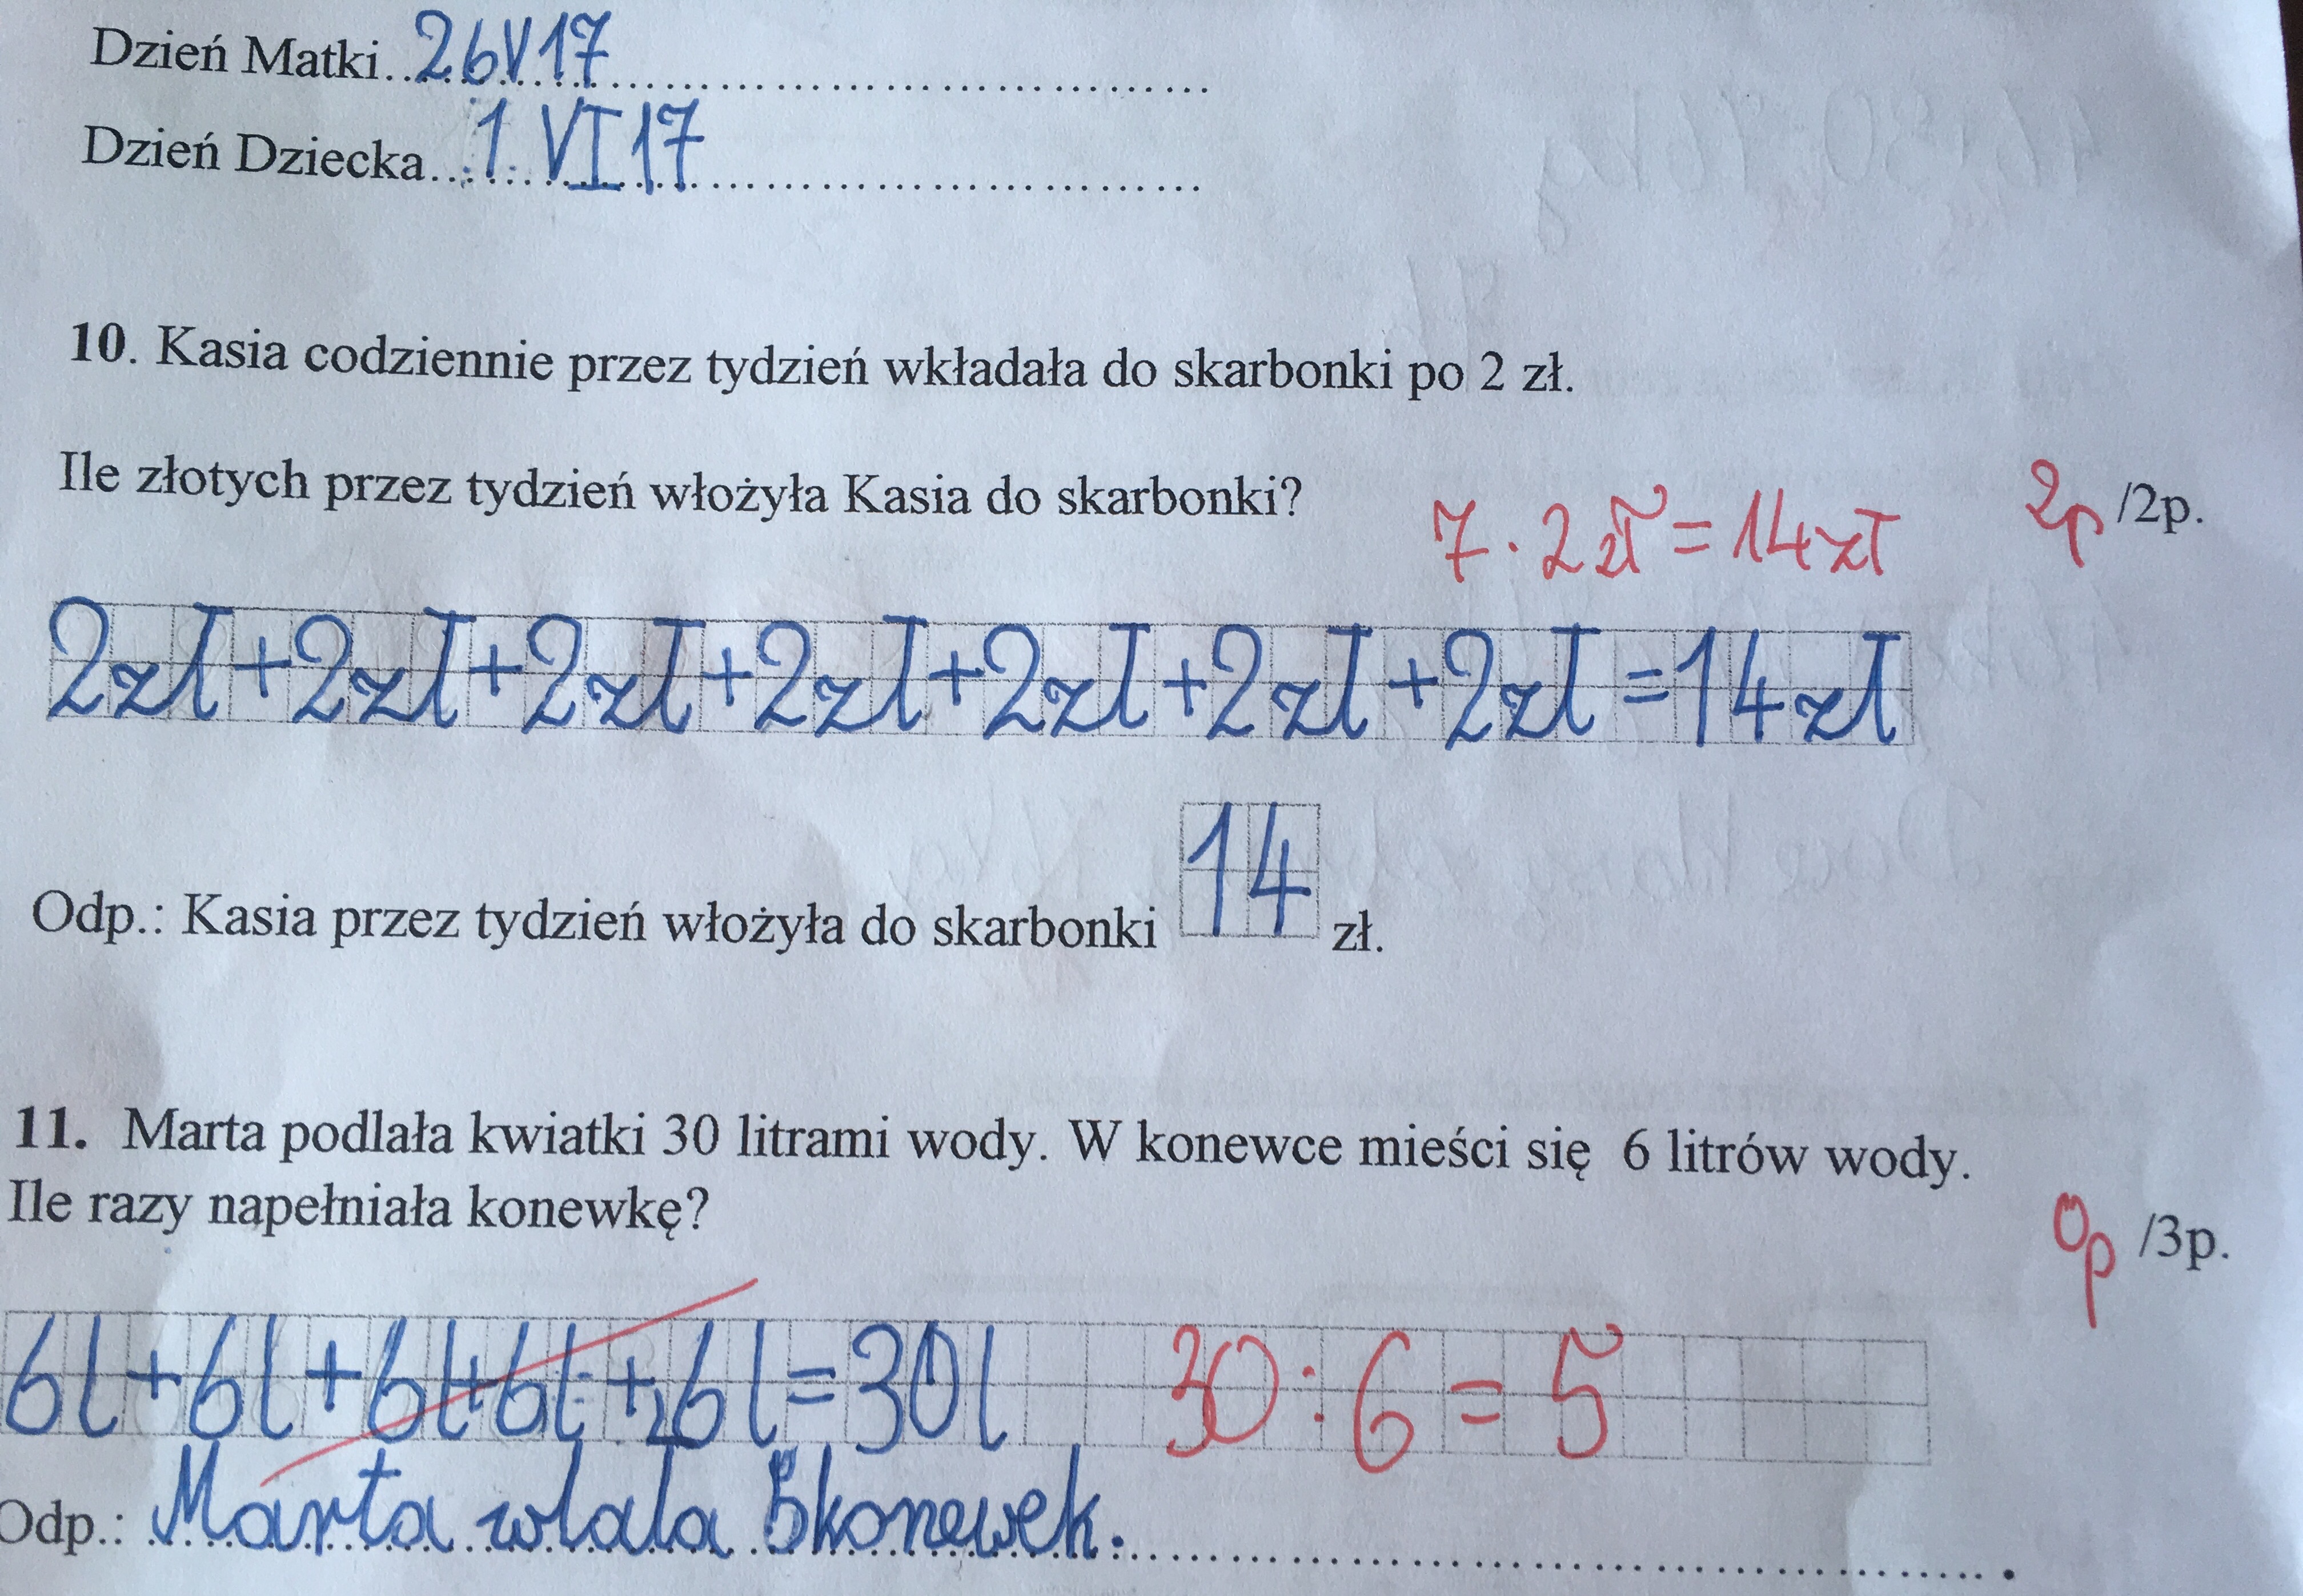 Dzień Matki..26V17..............................
Dzień Dziecka...1. VI 17..............................
10. Kasia codziennie przez tydzień wkładała do skarbonki po 2 zł.
Ile złotych przez tydzień włożyła Kasia do skarbonki? 7·2zł=14zł 2p /2p.
2zł+2zł+2zł+2zł+2zł+2zł+2zł=14zł
Odp.: Kasia przez tydzień włożyła do skarbonki 14 zł.
11. Marta podlała kwiatki 30 litrami wody. W konewce mieści się 6 litrów wody.
Ile razy napełniała konewkę? 0p /3p.
6l+6l+6l+6l+6l=30l 30:6=5
Odp.: Marta wlała 5 konewek.